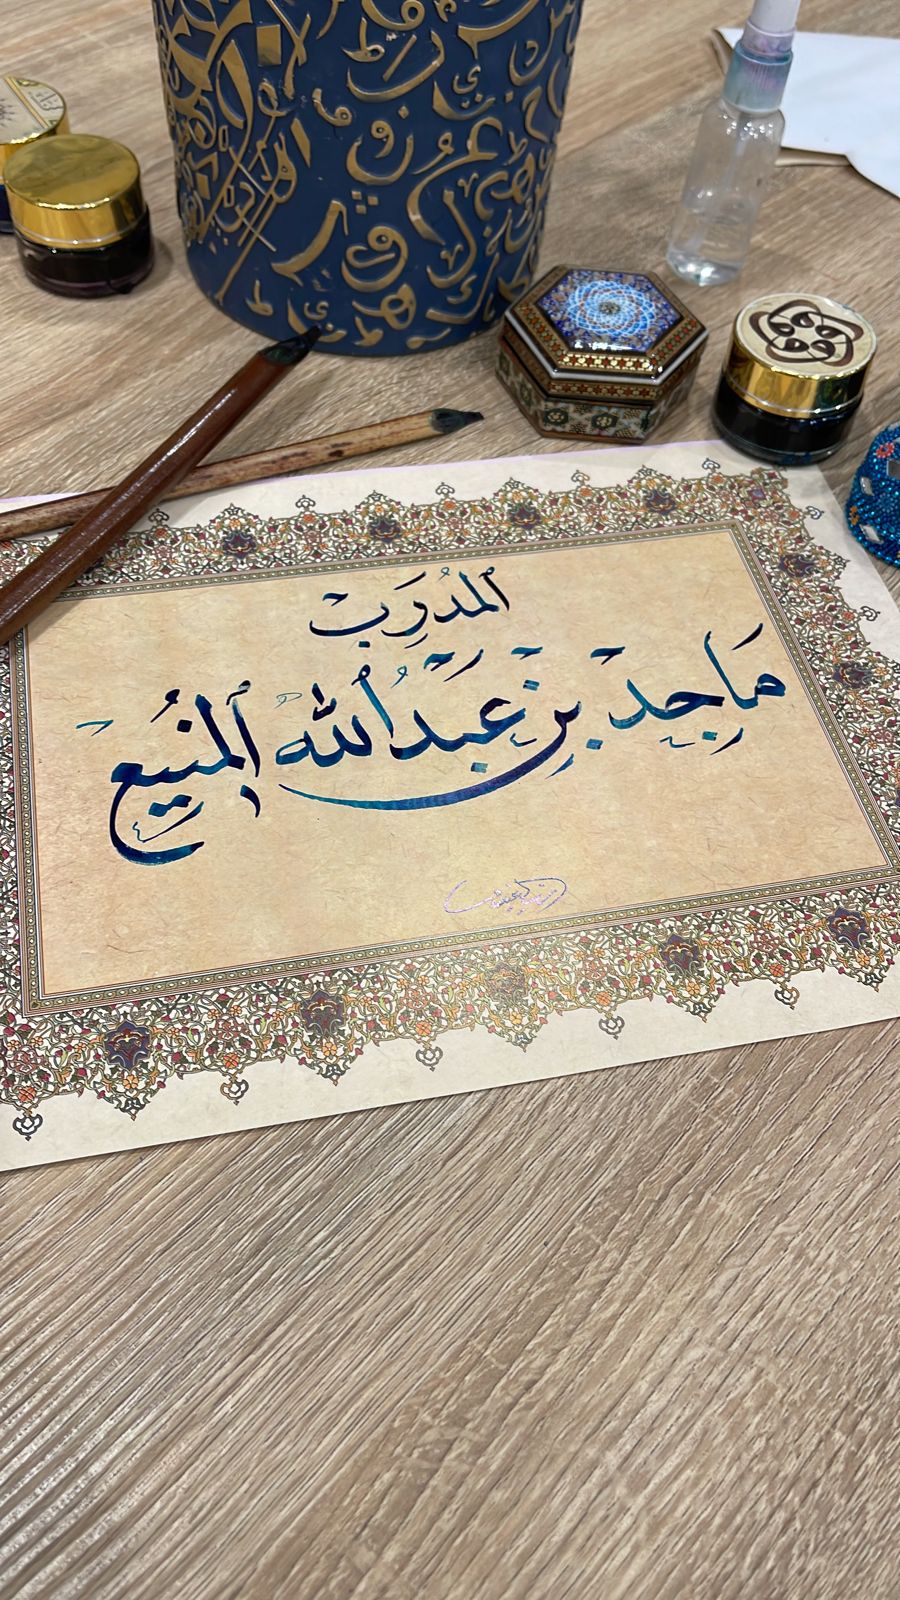 المدرب
ماجد بن عبدالله المنيع